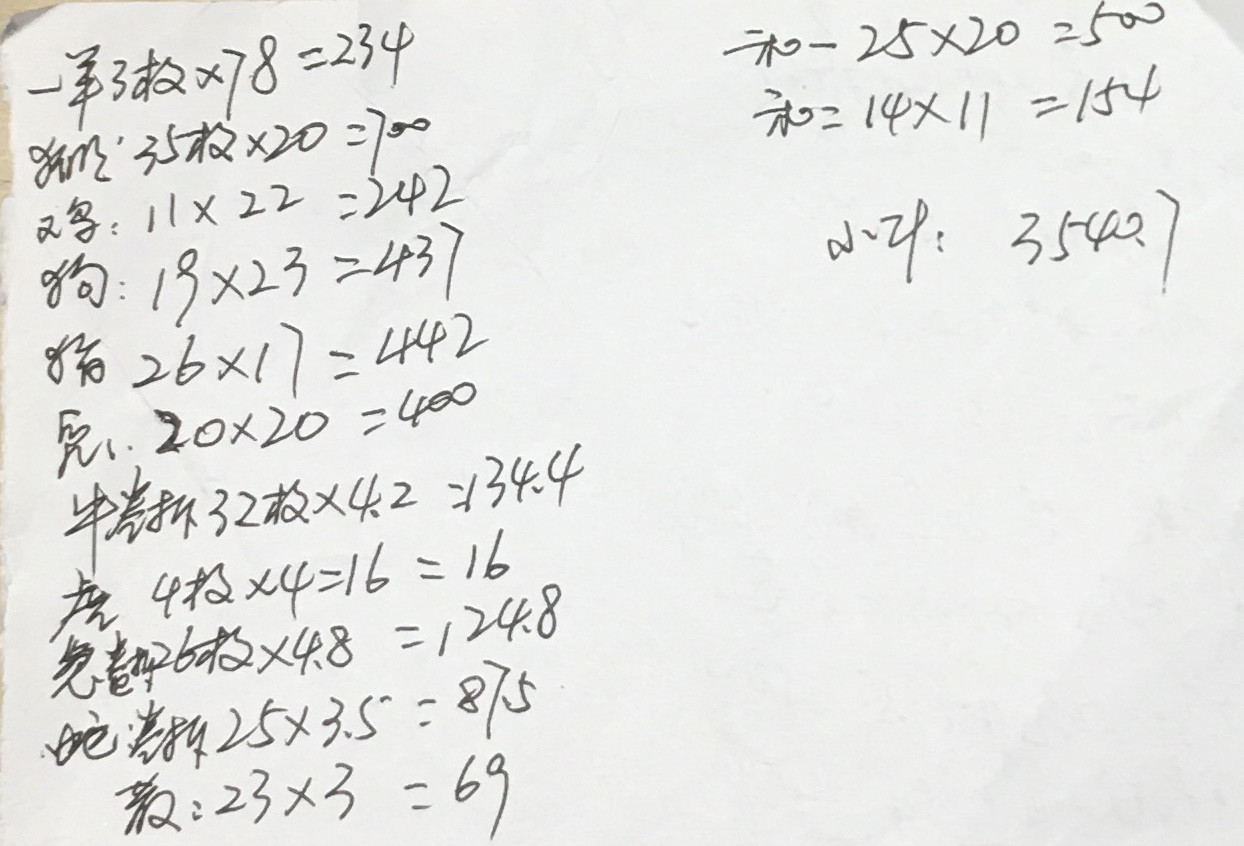 一羊3枚×78=234
猴: 35枚×20=700
鸡: 11×22=242
狗: 19×23=437
猪 26×17=442
鼠: 20×20=400
牛卷拆32枚×4.2=134.4
虎 4枚×4=16=16
兔卷拆26枚×4.8=124.8
蛇卷拆25×3.5=87.5
散:23×3=69
和一25×20=500
和二14×11=154
小计: 3540.7